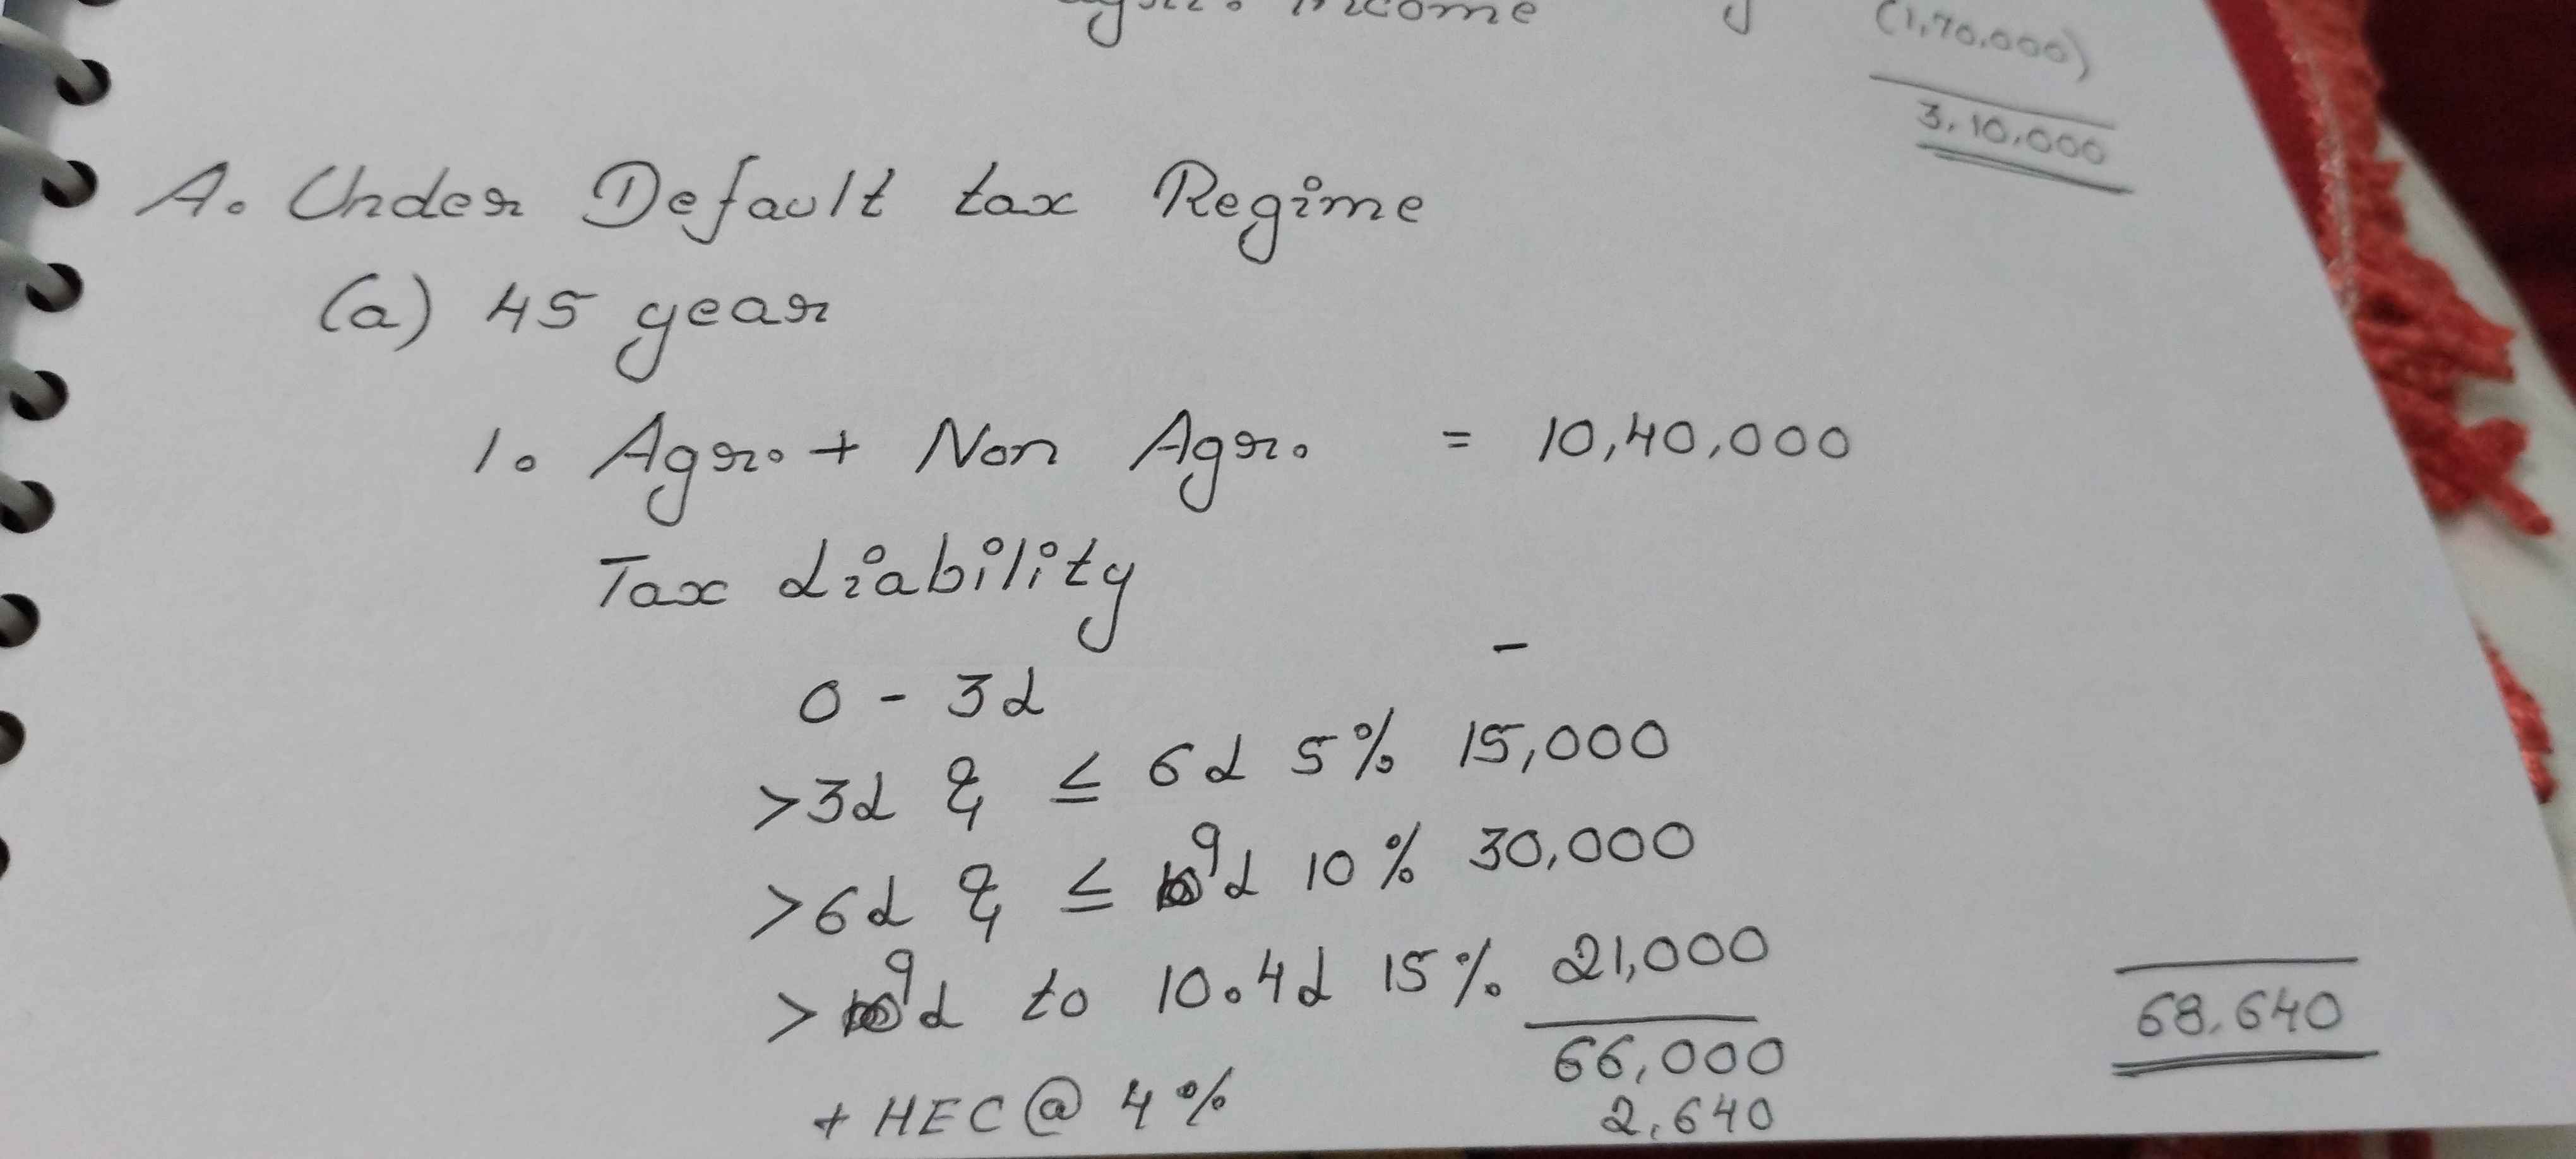 income (1,70,000)
3,10,000
A. Under Default tax Regime
(a) 45 year
1. Agr. + Non Agr. = 10,40,000
Tax Liability
0 - 3L -
>3L & ≤ 6L 5% 15,000
>6L & ≤ 9L 10% 30,000
>9L to 10.4L 15% 21,000
66,000 68,640
+ HEC @ 4% 2,640